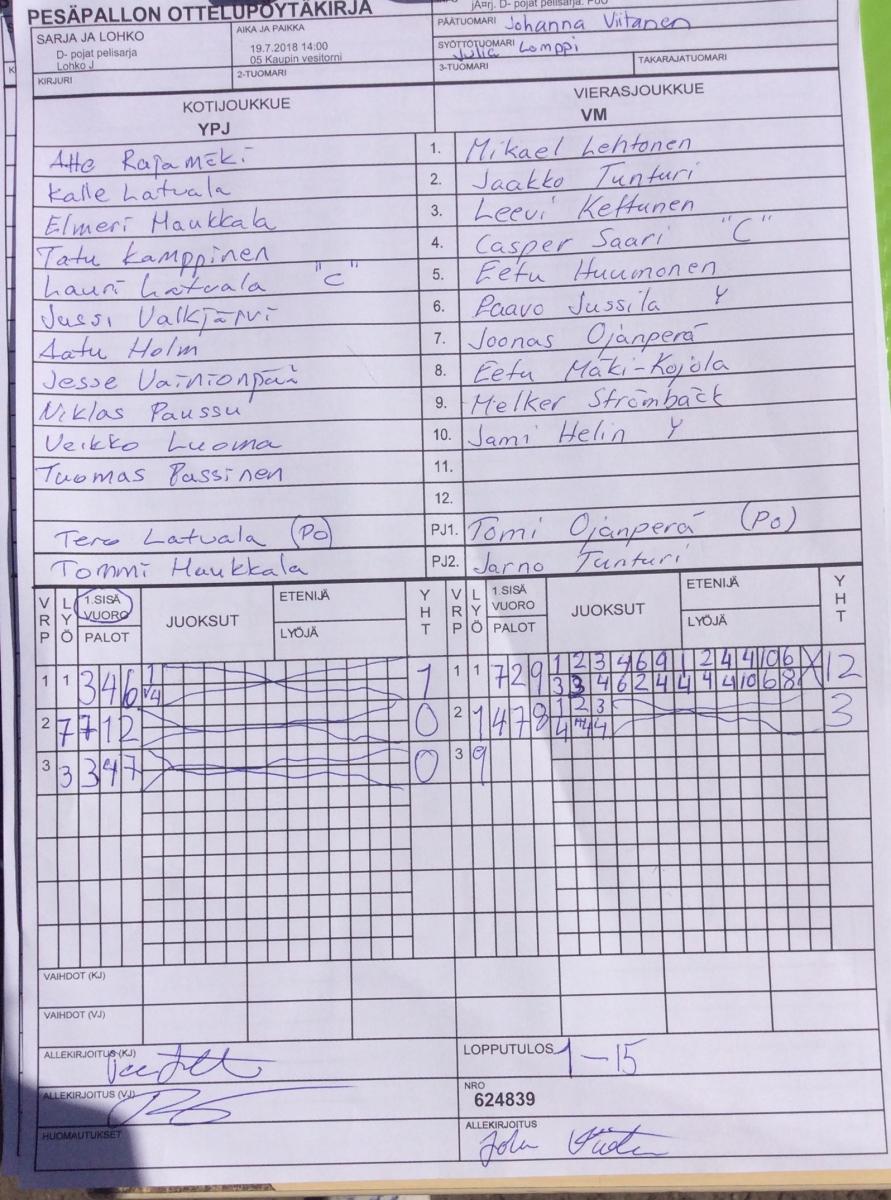 PESÄPALLON OTTELUPÖYTÄKIRJA
SARJA JA LOHKO
D- pojat pelisarja
Lohko J
AIKA JA PAIKKA
19.7.2018 14:00
05 Kaupin vesitorni
PÄÄTUOMARI Johanna Viitanen
SYÖTTÖTUOMARI Julia Lomppi
KIRJURI
2-TUOMARI
3-TUOMARI
TAKARAJATUOMARI
KOTIJOUKKUE
YPJ
VIERASJOUKKUE
VM
Atte Rajamäki 1. Mikael Lehtonen
Kalle Latvala 2. Jaakko Tunturi
Elmeri Haukkala 3. Leevi Kettunen
Tatu Kamppinen 4. Casper Saari "C"
Lauri Latvala "C" 5. Eetu Huumonen
Jussi Valkjärvi 6. Paavo Jussila Y
Aatu Holm 7. Joonas Ojanperä
Jesse Vainionpää 8. Eetu Mäki-Kojola
Niklas Paussu 9. Melker Strömbäck
Veikko Luoma 10. Jami Helin Y
Tuomas Passinen 11.
12.
Tero Latvala (Po) PJ1. Tomi Ojanperä (Po)
Tommi Haukkala PJ2. Jarno Tunturi
VRP LYÖ 1.SISÄ VUORO PALOT JUOKSUT ETENIJÄ LYÖJÄ YHT VRP LYÖ 1.SISÄ VUORO PALOT JUOKSUT ETENIJÄ LYÖJÄ YHT
1 1 3 4 6 1 1 1 1 7 2 9 1 2 3 4 6 9 1 2 4 4 10 6 12
3 3 4 6 2 4 4 4 4 10 6 8
2 7 7 1 2 0 2 1 4 7 8 1 2 3 3
3 3 3 4 7 0 3 9
VAIHDOT (KJ)
VAIHDOT (VJ)
ALLEKIRJOITUS (KJ)
LOPPUTULOS 1-15
ALLEKIRJOITUS (VJ)
NRO
624839
HUOMAUTUKSET
ALLEKIRJOITUS